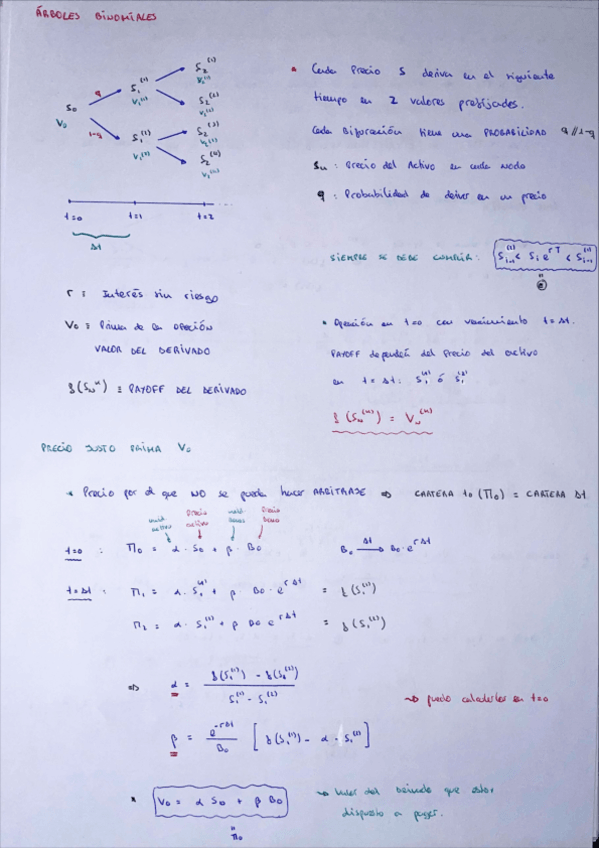 ÁRBOLES BINOMIALES
S₀
V₀
q
1-q
S₁⁽¹⁾
V₁⁽¹⁾
S₁⁽²⁾
V₁⁽²⁾
S₂⁽¹⁾
S₂⁽²⁾
S₂⁽³⁾
S₂⁽⁴⁾
t=0 t=1 t=2
Δt
* Cada Precio S deriva en el siguiente
tiempo en 2 valores prefijados.
Cada Bifuración tiene una PROBABILIDAD q//1-q
Sₙ : Precio del Activo en cada nodo
q : Probabilidad de derivar en un precio
SIEMPRE SE DEBE CUMPLIR:
r ≡ Interés sin riesgo
V₀ ≡ Prima de la OPCIÓN
VALOR DEL DERIVADO
f(Sₙ⁽ᵏ⁾) ≡ PAYOFF DEL DERIVADO
* Operación en t=0 con vencimiento t=Δt.
PAYOFF dependerá del Precio del activo
en t=Δt: S₁⁽¹⁾ ó S₁⁽²⁾
f(Sₙ⁽ᵏ⁾) = Vₙ⁽ᵏ⁾
PRECIO JUSTO PRIMA V₀
* Precio por el que NO se pueda hacer ARBITRAJE ⇒ CARTERA t₀ (Π₀) = CARTERA Δt
Precio activo
Precio bono
t=0 : Π₀ = α · S₀ + β · B₀
B₀ →Δt B₀·e^rΔt
t=Δt : Π₁ = α · S₁⁽¹⁾ + β · B₀ · e^rΔt = f(S₁⁽¹⁾)
Π₂ = α · S₁⁽²⁾ + β B₀ e^rΔt = f(S₁⁽²⁾)
⇒ α = (f(S₁⁽¹⁾) - f(S₁⁽²⁾)) / (S₁⁽¹⁾ - S₁⁽²⁾)
→ puedo calcularlos en t=0
β = e^-rΔt / B₀ [f(S₁⁽¹⁾) - α · S₁⁽¹⁾]
* V₀ = α S₀ + β B₀
Π₀
→ Valor del derivado que estoy
dispuesto a pagar.